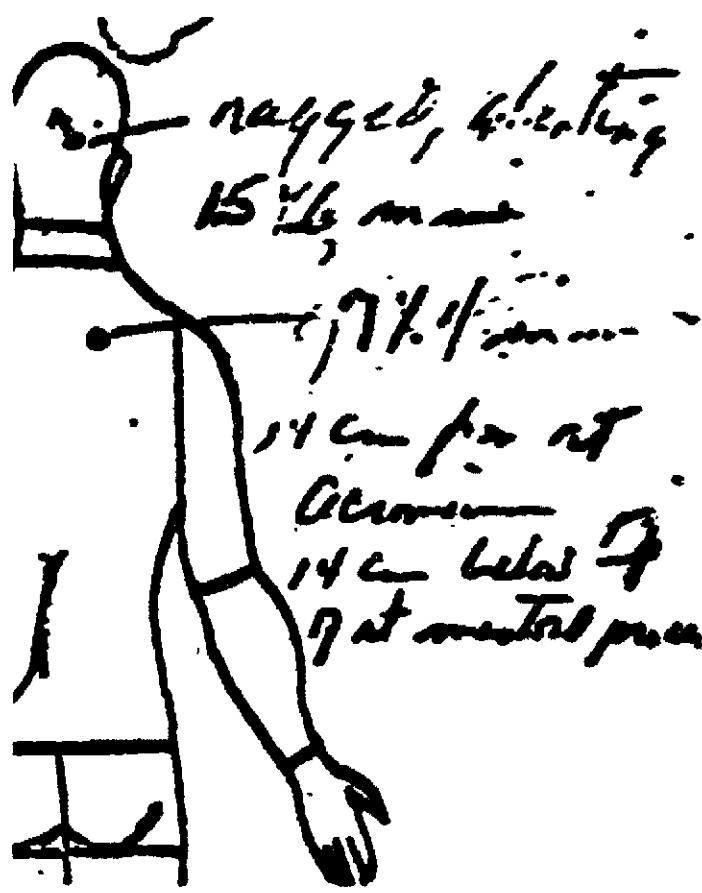 ragged, slanting
15 x 6 mm
7 x 4 mm
14 cm from rt
acromion
14 cm below
rt mastoid